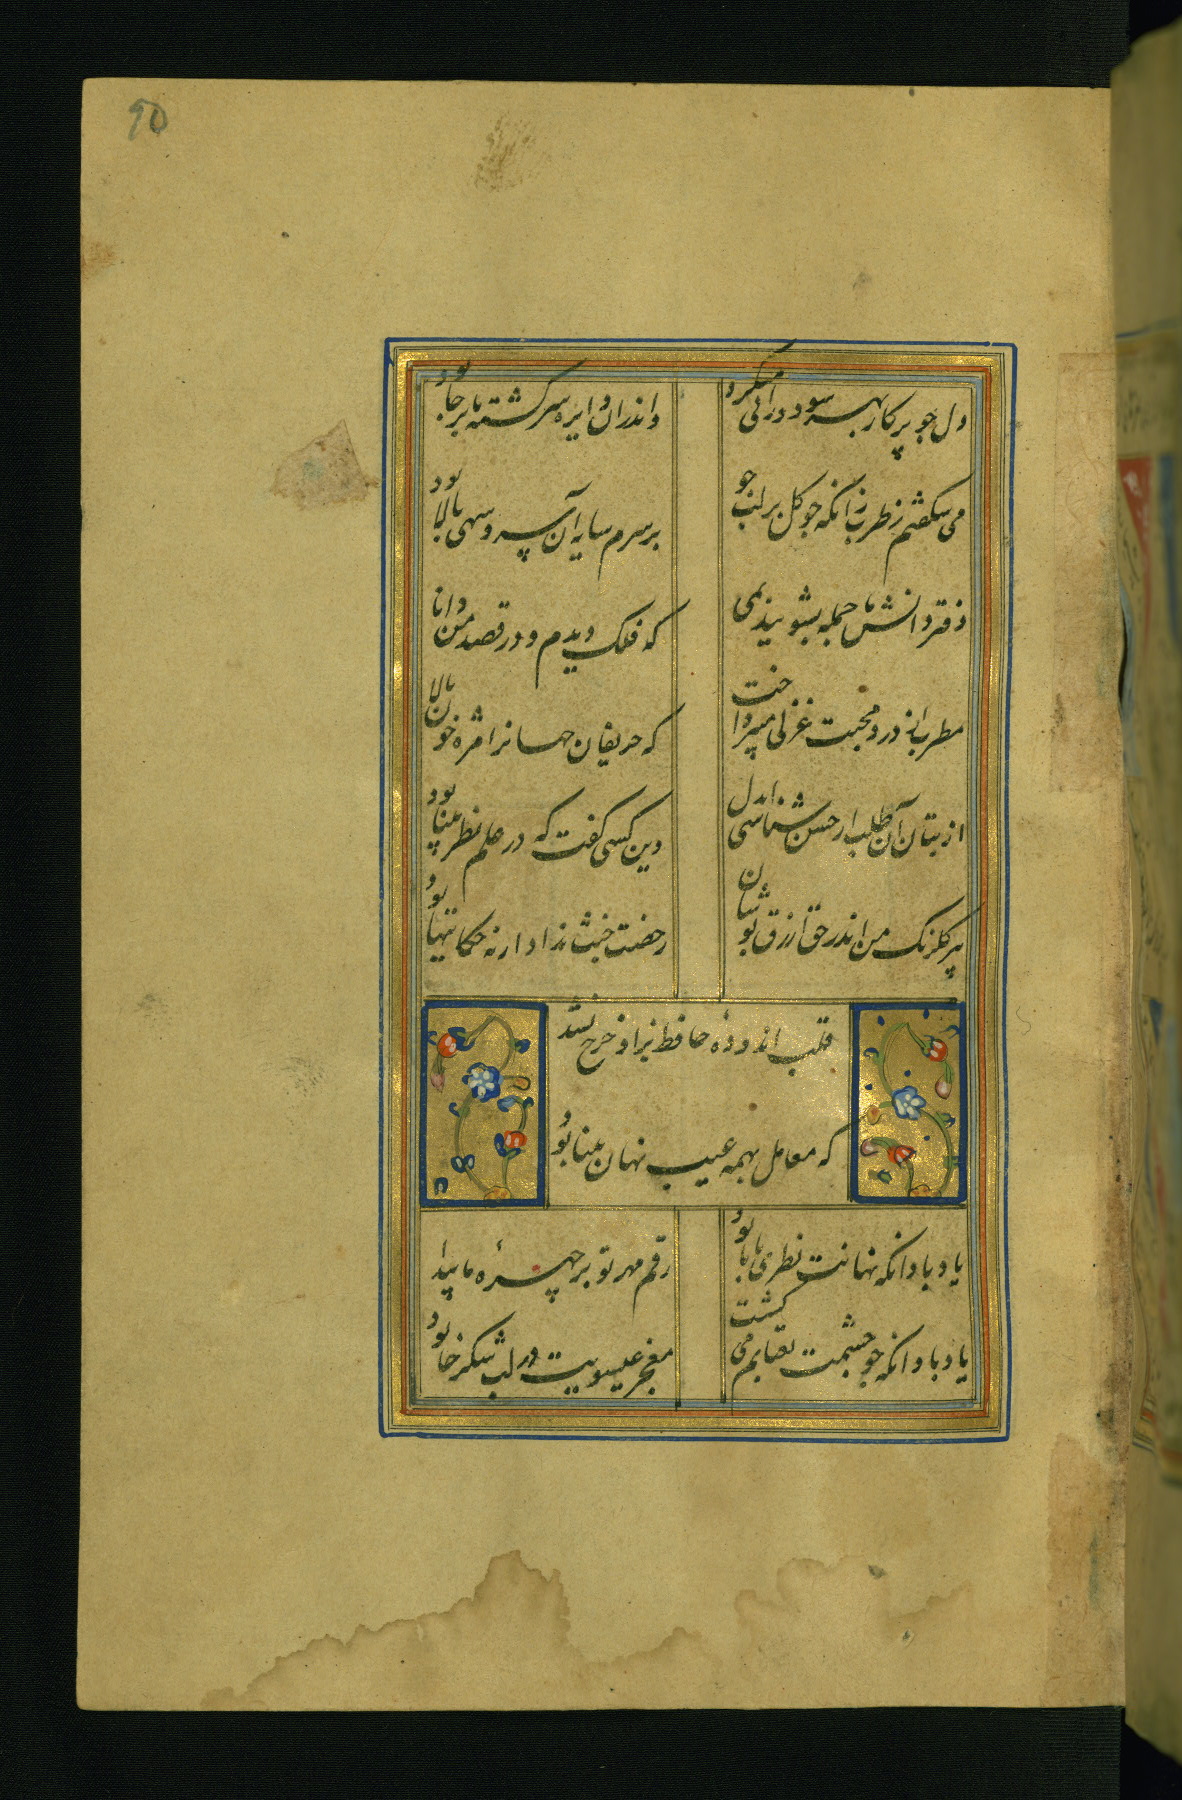 90
دل جو پرکار بهر سو دورانی میکرد
واندران دایره سرکشته پابرجا بود
می شکفتم ز طرب زانکه جو کل بر لب جو
بر سرم سایه آن سرو سهی بالا بود
دفتر دانش ما جمله بشویید بمی
که فلک دیدم و در قصد من دانا
مطرب از درد محبت غزلی میپرداخت
که حریفان جهانرا مژه خون پالا
از بتان آن طلب ار حسن شناسی ایدل
وین کسی کفت که در علم نظر بینا بود
پیر کلرنک من اندر حق ازرق پوشان
رخصت خبث نداد ارنه حکایتها بود
قلب اندودهٔ حافظ بر او خرج نشد
که معامل بهمه عیب نهان بینا بود
یاد باد انکه نهانت نظری با ما بود
رقم مهر تو بر چهرهٔ ما پیدا
یاد باد انکه جو چشمت بعتابم می کشت
معجز عیسویت در لب شکرخا بود